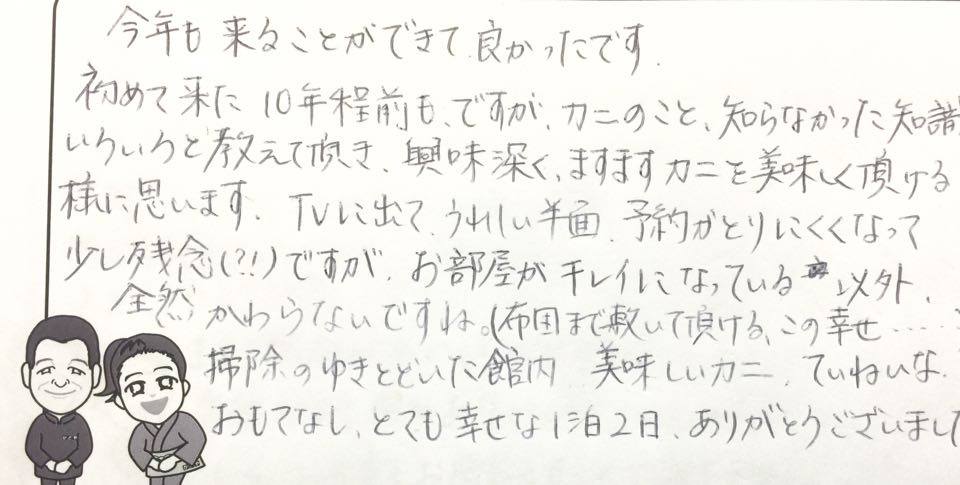 今年も来ることができて良かったです.
初めて来た10年程前も、ですが、カニのこと、知らなかった知識
いろいろと教えて頂き、興味深く、ますますカニを美味しく頂ける
様に思います. TVに出て、うれしい半面、予約がとりにくくなって
少し残念(?!)ですが、お部屋がキレイになっている 以外、
全然かわらないですね。(布団まで敷いて頂ける、この幸せ……
掃除のゆきとどいた館内 美味しいカニ、ていねいな
おもてなし、とても幸せな1泊2日、ありがとうございました